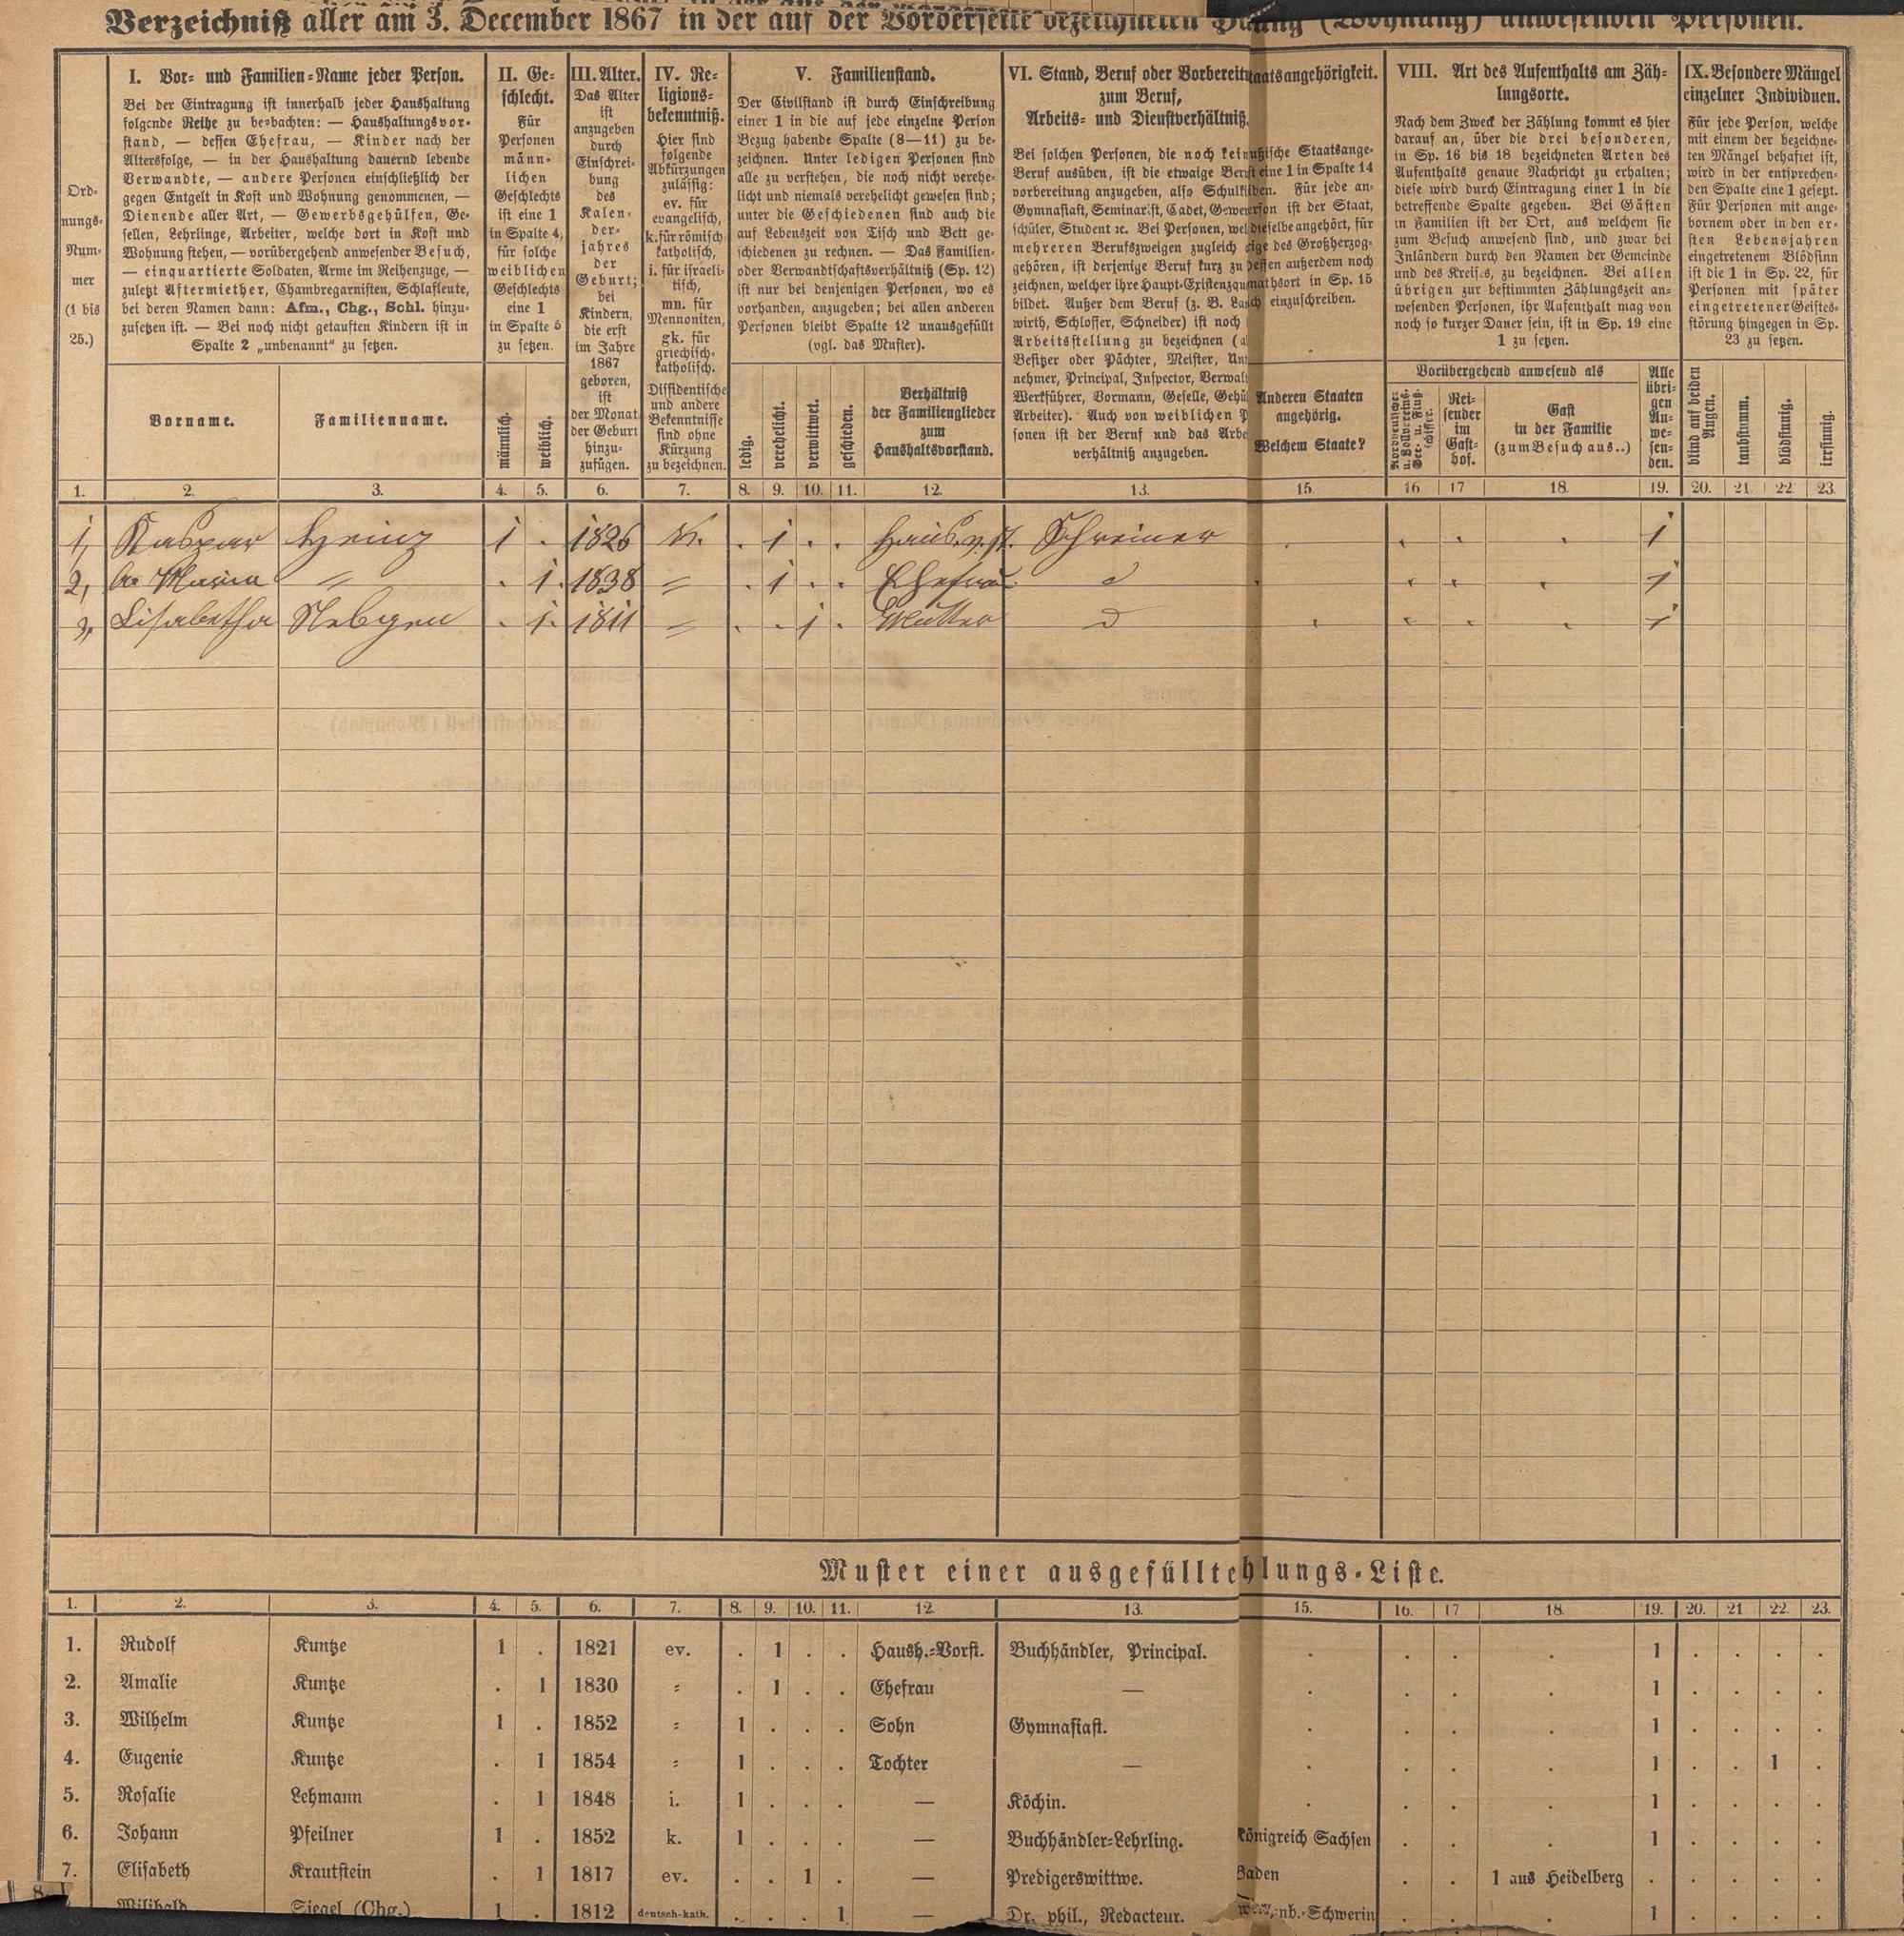 Verzeichniß aller am 3. December 1867 in der auf der Vorderseite bezeichneten (Wohnung) anwesenden Personen.
Ord-
nungs-
Num-
mer
(1 bis
25.)
I. Vor- und Familien-Name jeder Person.
Bei der Eintragung ist innerhalb jeder Haushaltung
folgende Reihe zu beobachten: — Haushaltungsvor-
stand, — dessen Ehefrau, — Kinder nach der
Altersfolge, — in der Haushaltung dauernd lebende
Verwandte, — andere Personen einschließlich der
gegen Entgelt in Kost und Wohnung genommenen, —
Dienende aller Art, — Gewerbsgehülfen, Ge-
sellen, Lehrlinge, Arbeiter, welche dort in Kost und
Wohnung stehen, — vorübergehend anwesender Besuch,
— einquartierte Soldaten, Arme im Reihenzuge, —
zuletzt Aftermiether, Chambregarnisten, Schlafleute,
bei deren Namen dann: Afm., Chg., Schl. hinzu-
zusetzen ist. — Bei noch nicht getauften Kindern ist in
Spalte 2 „unbenannt" zu setzen.
Vorname.
Familienname.
II. Ge-
schlecht.
Für
Personen
männ-
lichen
Geschlechts
ist eine 1
in Spalte 4,
für solche
weiblichen
Geschlechts
eine 1
in Spalte 5
zu setzen.
männlich.
weiblich.
III. Alter.
Das Alter
ist
anzugeben
durch
Einschrei-
bung
des
Kalen-
der-
jahres
der
Geburt;
bei
Kindern,
die erst
im Jahre
1867
geboren,
ist
der Monat
der Geburt
hinzu-
zufügen.
IV. Re-
ligions-
bekenntniß.
Hier sind
folgende
Abkürzungen
zulässig:
ev. für
evangelisch,
k. für römisch-
katholisch,
i. für israeli-
tisch,
mn. für
Mennoniten,
gk. für
griechisch-
katholisch.
Dissidentische
und andere
Bekenntnisse
sind ohne
Kürzung
zu bezeichnen.
V. Familienstand.
Der Civilstand ist durch Einschreibung
einer 1 in die auf jede einzelne Person
Bezug habende Spalte (8—11) zu be-
zeichnen. Unter ledigen Personen sind
alle zu verstehen, die noch nicht verehe-
licht und niemals verehelicht gewesen sind;
unter die Geschiedenen sind auch die
auf Lebenszeit von Tisch und Bett ge-
schiedenen zu rechnen. — Das Familien-
oder Verwandtschaftsverhältniß (Sp. 12)
ist nur bei denjenigen Personen, wo es
vorhanden, anzugeben; bei allen anderen
Personen bleibt Spalte 12 unausgefüllt
(vgl. das Muster).
ledig.
verehelicht.
verwittwet.
geschieden.
Verhältniß
der Familienglieder
zum
Haushaltsvorstand.
VI. Stand, Beruf oder Vorbereitu
zum Beruf,
Arbeits- und Dienstverhältniß.
Bei solchen Personen, die noch kein
Beruf ausüben, ist die etwaige Ber
vorbereitung anzugeben, also Schulk
Gymnasiast, Seminarist, Cadet, Gewer
schüler, Student ꝛc. Bei Personen, wel
mehreren Berufszweigen zugleich
gehören, ist derjenige Beruf kurz zu
zeichnen, welcher ihre Haupt-Existenzqu
bildet. Außer dem Beruf (z. B. La
wirth, Schlosser, Schneider) ist noch
Arbeitsstellung zu bezeichnen (a
Besitzer oder Pächter, Meister, Unt
nehmer, Principal, Inspector, Verwal
Werkführer, Vormann, Geselle, Gehü
Arbeiter). Auch von weiblichen P
sonen ist der Beruf und das Arbe
verhältniß anzugeben.
aatsangehörigkeit.
ßische Staatsange-
eine 1 in Spalte 14
ben. Für jede an-
rson ist der Staat,
dieselbe angehört, für
ige des Großherzog-
essen außerdem noch
mathsort in Sp. 15
ch einzuschreiben.
Anderen Staaten
angehörig.
Welchem Staate?
VIII. Art des Aufenthalts am Zäh-
lungsorte.
Nach dem Zweck der Zählung kommt es hier
darauf an, über die drei besonderen,
in Sp. 16 bis 18 bezeichneten Arten des
Aufenthalts genaue Nachricht zu erhalten;
diese wird durch Eintragung einer 1 in die
betreffende Spalte gegeben. Bei Gästen
in Familien ist der Ort, aus welchem sie
zum Besuch anwesend sind, und zwar bei
Inländern durch den Namen der Gemeinde
und des Kreises, zu bezeichnen. Bei allen
übrigen zur bestimmten Zählungszeit an-
wesenden Personen, ihr Aufenthalt mag von
noch so kurzer Dauer sein, ist in Sp. 19 eine
1 zu setzen.
Vorübergehend anwesend als
Norddeutscher
u. Zollvereins-
See- u. Fluß-
schiffer.
Rei-
sender
im
Gast-
hof.
Gast
in der Familie
(zum Besuch aus..)
Alle
übri-
gen
An-
we-
sen-
den.
IX. Besondere Mängel
einzelner Individuen.
Für jede Person, welche
mit einem der bezeichne-
ten Mängel behaftet ist,
wird in der entsprechen-
den Spalte eine 1 gesetzt.
Für Personen mit ange-
bornem oder in den er-
sten Lebensjahren
eingetretenem Blödsinn
ist die 1 in Sp. 22, für
Personen mit später
eingetretener Geistes-
störung hingegen in Sp.
23 zu setzen.
blind auf beiden
Augen.
taubstumm.
blödsinnig.
irrsinnig.
1. 2. 3. 4. 5. 6. 7. 8. 9. 10. 11. 12. 13. 15. 16 17 18. 19. 20. 21. 22 23.
1, Kaspar Heinz 1 . 1826 K. . 1 . . Haus.v.st. Schreiner . . . . 1
2, Maria = . 1. 1838 = . 1 . . Ehefrau . . . . 1
3, Lisabetha Nebgen . 1. 1811 = . . 1 . Mutter . . . . 1
Muster einer ausgefüllte hlungs-Liste.
1. 2. 3. 4. 5. 6. 7. 8. 9. 10. 11. 12. 13. 15. 16. 17 18. 19. 20. 21 22. 23.
1. Rudolf Kuntze 1 . 1821 ev. . 1 . . Haush.-Vorst. Buchhändler, Principal. . . . . 1 . . . .
2. Amalie Kuntze . 1 1830 = . 1 . . Ehefrau — . . . . 1 . . . .
3. Wilhelm Kuntze 1 . 1852 = 1 . . . Sohn Gymnasiast. . . . . 1 . . . .
4. Eugenie Kuntze . 1 1854 = 1 . . . Tochter — . . . . 1 . . 1 .
5. Rosalie Lehmann . 1 1848 i. 1 . . . — Köchin. . . . . 1 . . . .
6. Johann Pfeilner 1 . 1852 k. 1 . . . — Buchhändler-Lehrling. Königreich Sachsen . . . 1 . . . .
7. Elisabeth Krautstein . 1 1817 ev. . . 1 . — Predigerswittwe. Baden . . 1 aus Heidelberg . . . . .
8. Wilibald Siegel (Chg.) 1 . 1812 deutsch-kath. . . . 1 — Dr. phil., Redacteur. nb.-Schwerin . . . 1 . . . .